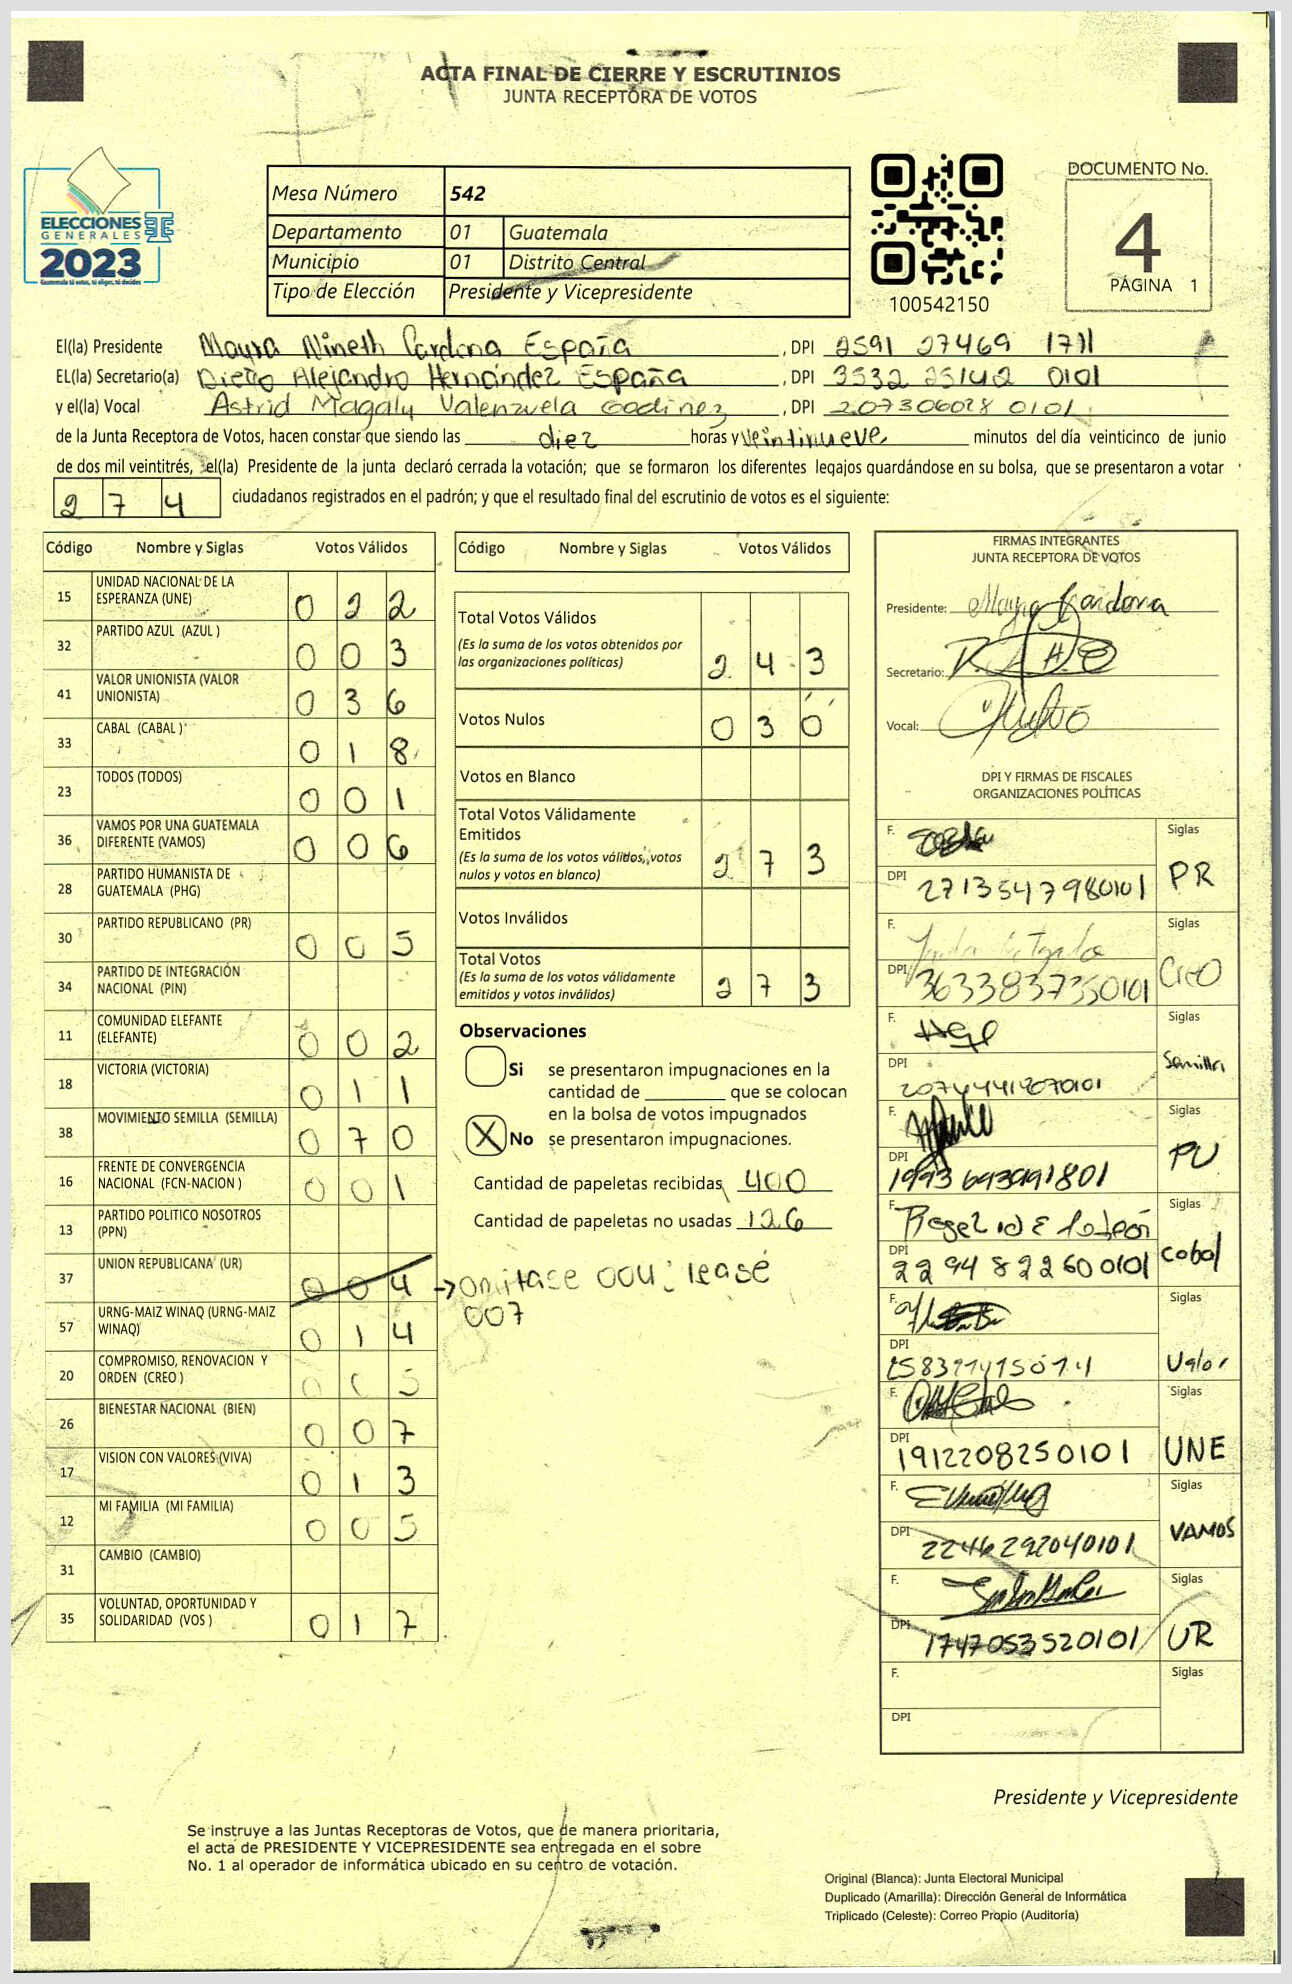 ACTA FINAL DE CIERRE Y ESCRUTINIOS
JUNTA RECEPTORA DE VOTOS
ELECCIONES
GENERALES
2023
Guatemala tú votas, tú eliges, tú decides
Mesa Número 542
Departamento 01 Guatemala
Municipio 01 Distrito Central
Tipo de Elección Presidente y Vicepresidente
100542150
DOCUMENTO No.
4
PÁGINA 1
El(la) Presidente Mayra Nineth Cardona España, DPI 2591 27469 1711
EL(la) Secretario(a) Diego Alejandro Hernández España, DPI 3532 25142 0101
y el(la) Vocal Astrid Magaly Valenzuela Godinez, DPI 207306028 0101
de la Junta Receptora de Votos, hacen constar que siendo las diez horas y veintinueve minutos del día veinticinco de junio
de dos mil veintitrés, el(la) Presidente de la junta declaró cerrada la votación; que se formaron los diferentes legajos guardándose en su bolsa, que se presentaron a votar
274 ciudadanos registrados en el padrón; y que el resultado final del escrutinio de votos es el siguiente:
Código Nombre y Siglas Votos Válidos
15 UNIDAD NACIONAL DE LA ESPERANZA (UNE) 022
32 PARTIDO AZUL (AZUL) 003
41 VALOR UNIONISTA (VALOR UNIONISTA) 036
33 CABAL (CABAL) 018
23 TODOS (TODOS) 001
36 VAMOS POR UNA GUATEMALA DIFERENTE (VAMOS) 006
28 PARTIDO HUMANISTA DE GUATEMALA (PHG)
30 PARTIDO REPUBLICANO (PR) 005
34 PARTIDO DE INTEGRACIÓN NACIONAL (PIN)
11 COMUNIDAD ELEFANTE (ELEFANTE) 002
18 VICTORIA (VICTORIA) 011
38 MOVIMIENTO SEMILLA (SEMILLA) 070
16 FRENTE DE CONVERGENCIA NACIONAL (FCN-NACION) 001
13 PARTIDO POLITICO NOSOTROS (PPN)
37 UNION REPUBLICANA (UR) 004
57 URNG-MAIZ WINAQ (URNG-MAIZ WINAQ) 014
20 COMPROMISO, RENOVACION Y ORDEN (CREO) 005
26 BIENESTAR NACIONAL (BIEN) 007
17 VISION CON VALORES (VIVA) 013
12 MI FAMILIA (MI FAMILIA) 005
31 CAMBIO (CAMBIO)
35 VOLUNTAD, OPORTUNIDAD Y SOLIDARIDAD (VOS) 017
Código Nombre y Siglas Votos Válidos
Total Votos Válidos
(Es la suma de los votos obtenidos por
las organizaciones políticas) 243
Votos Nulos 030
Votos en Blanco
Total Votos Válidamente
Emitidos
(Es la suma de los votos válidos, votos
nulos y votos en blanco) 273
Votos Inválidos
Total Votos
(Es la suma de los votos válidamente
emitidos y votos inválidos) 273
Observaciones
Si se presentaron impugnaciones en la
cantidad de ________ que se colocan
en la bolsa de votos impugnados
X No se presentaron impugnaciones.
Cantidad de papeletas recibidas 400
Cantidad de papeletas no usadas 126
→ omitase 004; lease
007
FIRMAS INTEGRANTES
JUNTA RECEPTORA DE VOTOS
Presidente: Mayra Cardona
Secretario:
Vocal:
DPI Y FIRMAS DE FISCALES
ORGANIZACIONES POLÍTICAS
F. Siglas
DPI 2713547980101 PR
F. Siglas
DPI 3633837350101 CREO
F. Siglas
DPI 2074441207 0101 Semilla
F. Siglas
DPI PU
F. Siglas
DPI 2294822600101 cabal
F. Siglas
DPI Valor
F. Siglas
DPI 1912208250101 UNE
F. Siglas
DPI 2246292040101 VAMOS
F. Siglas
DPI 1747053520101 UR
F. Siglas
DPI
Presidente y Vicepresidente
Se instruye a las Juntas Receptoras de Votos, que de manera prioritaria,
el acta de PRESIDENTE Y VICEPRESIDENTE sea entregada en el sobre
No. 1 al operador de informática ubicado en su centro de votación.
Original (Blanca): Junta Electoral Municipal
Duplicado (Amarilla): Dirección General de Informática
Triplicado (Celeste): Correo Propio (Auditoría)